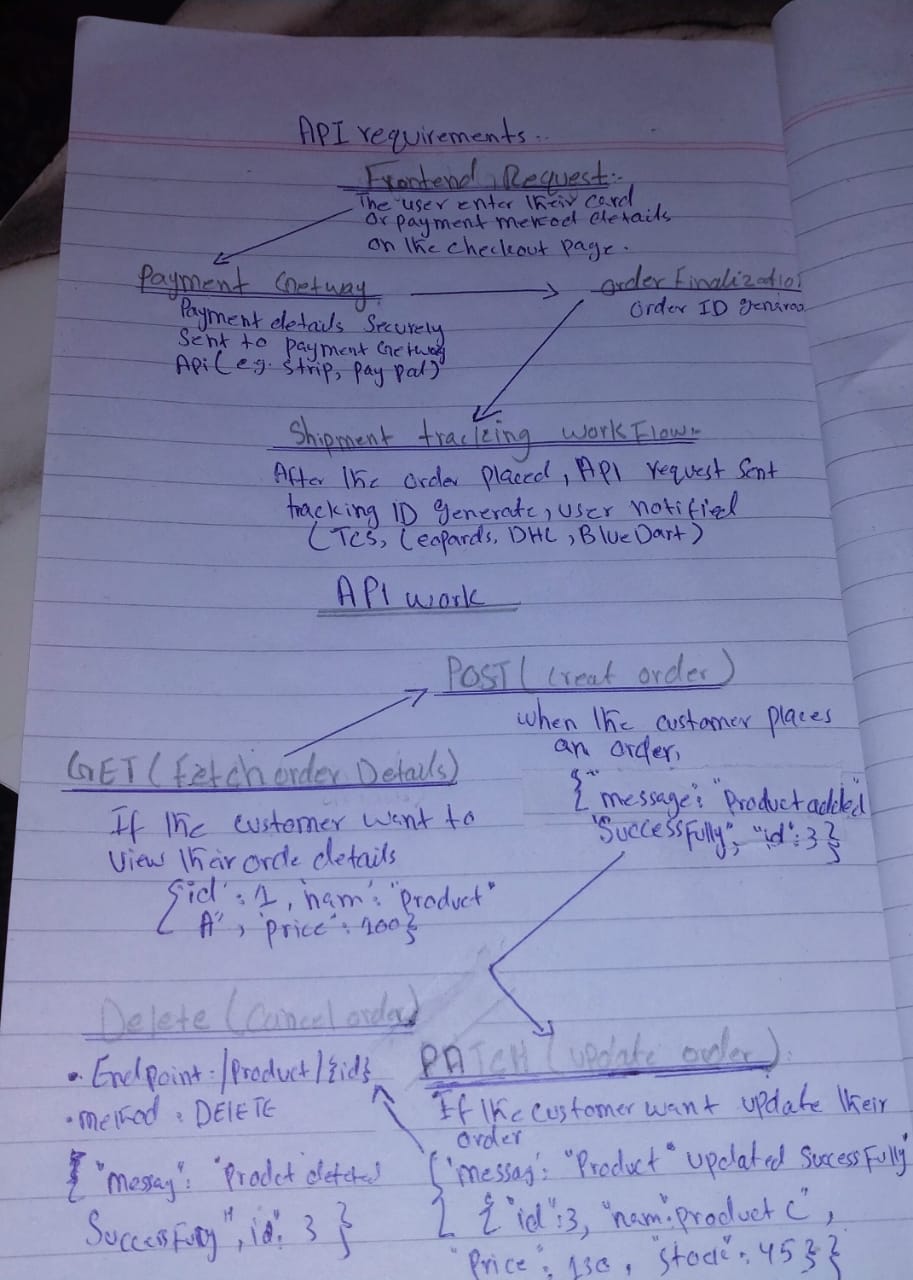 API requirements..
Frontend Request:-
The user enter their card
or payment method details
on the checkout page.
Payment Getway
Payment details Securely
Sent to payment Getway
Api (e.g. strip, pay pal)
order Finalization
order ID
Shipment tracking workFlow:-
After the order placed, API request sent
tracking ID generate, user notified
(TCS, Leopards, DHL, BlueDart)
API work
POST (creat order)
when the customer places
an order,
{"message": "Product added
Successfully", "id": 3}
GET (Fetch order Details)
If the customer want to
view their orde details
{"id": 1, "nam": "product"
A", "price": 100}
Delete (Cancel order)
• Endpoint: /Product/{id}
• method: DELETE
{"messag": "Prodct deleted
Successfuly", id": 3}
PATCH (update order):
If the customer want update their
order
{"messag": "Product" updated Successfully"
{"id": 3, "nam": product C",
"Price": 130, "stock": 45}}